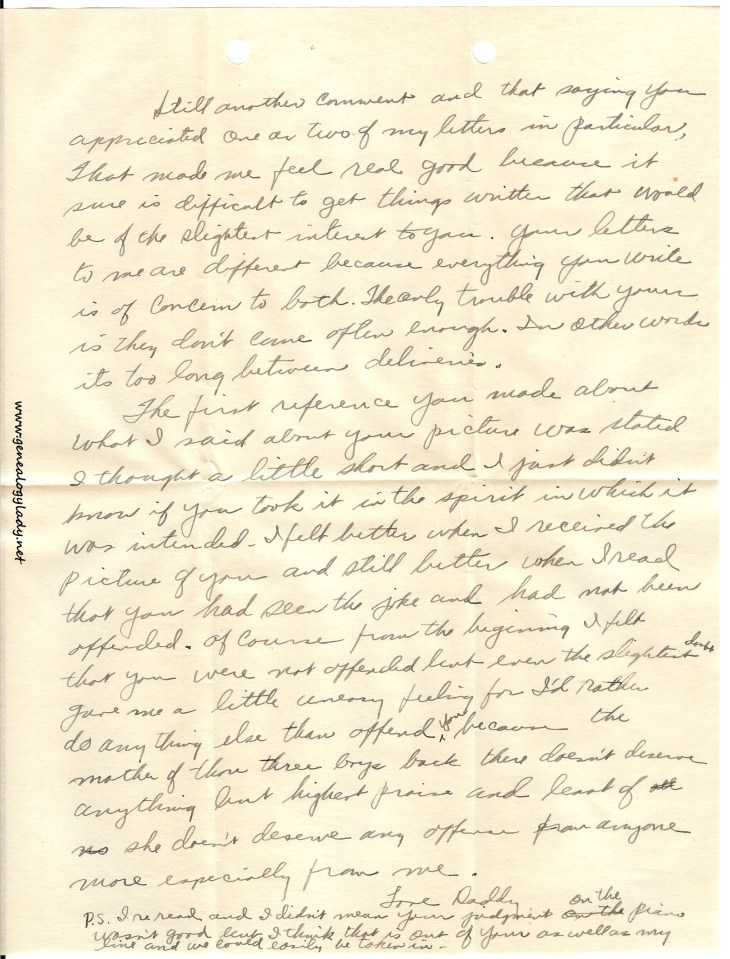 Still another comment and that saying you
appreciated one or two of my letters in particular,
That made me feel real good because it
sure is difficult to get things written that would
be of the slightest interest to you. Your letters
to me are different because everything you write
is of concern to both. The only trouble with yours
is they don't come often enough. In other words
its too long between deliveries.
The first reference you made about
what I said about your picture was stated
I thought a little short and I just didn't
know if you took it in the spirit in which it
was intended. I felt better when I received the
picture of you and still better when I read
that you had seen the joke and had not been
offended. Of course from the begining I felt
that you were not offended but even the slightest doubt
gave me a little uneasy feeling for I'd rather
do anything else than offend you because the
mother of those three boys back there doesn't deserve
anything but highest praise and least of all
no she doesn't deserve any offense from anyone
more especially from me.
Love Daddy
P.S. I reread and I didn't mean your judgment on the on the piano
wasn't good but I think that is out of your as well as my
line and we could easily be taken in.
www.genealogylady.net